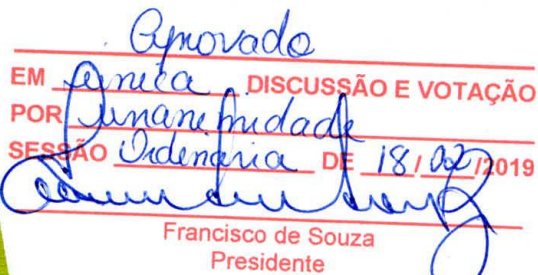 Aprovado
EM única DISCUSSÃO E VOTAÇÃO
POR Unanimidade
SESSÃO Ordinária DE 18/02/2019
Francisco de Souza
Presidente